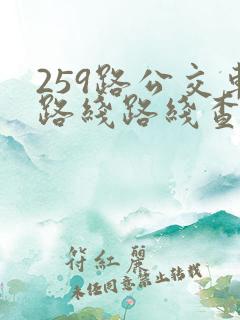 259路公交车
路线路线查
符红丽
未经同意禁止转载